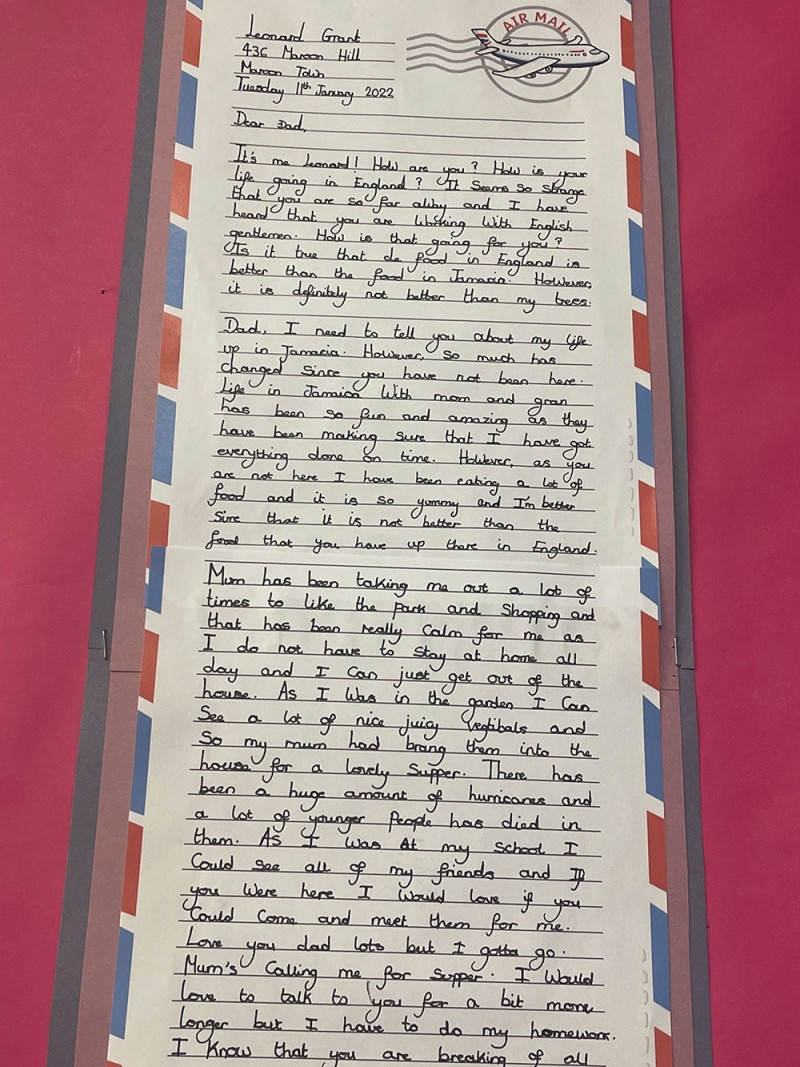 AIR MAIL
Leonard Grant
436 Maroon Hill
Maroon Town
Tuesday 11th January 2022
Dear Dad,
It's me Leonard! How are you? How is your
life going in England? It Seems So Strange
that you are so far away and I have
heard that you are Working With English
gentlemen. How is that going for you?
Is it true that de food in England is
better than the food in Jamacia. However,
it is definitely not better than my trees.
Dad, I need to tell you about my life
up in Jamacia. However, so much has
changed Since you have not been here.
Life in Jamaica With mom and gran
has been so fun and amazing as they
have been making sure that I have got
everything done on time. However, as you
are not here I have been eating a lot of
food and it is so yummy and I'm better
Sire that it is not better than the
food that you have up there in England.
Mum has been taking me out a lot of
times to like the park and Shopping and
that has been really Calm for me as
I do not have to Stay at home all
day and I Can just get out of the
house. As I Was in the garden I Can
See a lot of nice juicy Vegtibals and
So my mum had brang them into the
house for a lovely Supper. There has
been a huge amount of hurricanes and
a lot of younger People has died in
them. As I Was At my School I
Could see all of my friends and If
you Were here I Would love if you
Could Come and meet them for me.
Love you dad lots but I gotta go.
Mum's Calling me for Supper. I Would
love to talk to you for a bit more
longer but I have to do my homework.
I Know that you are breaking of all